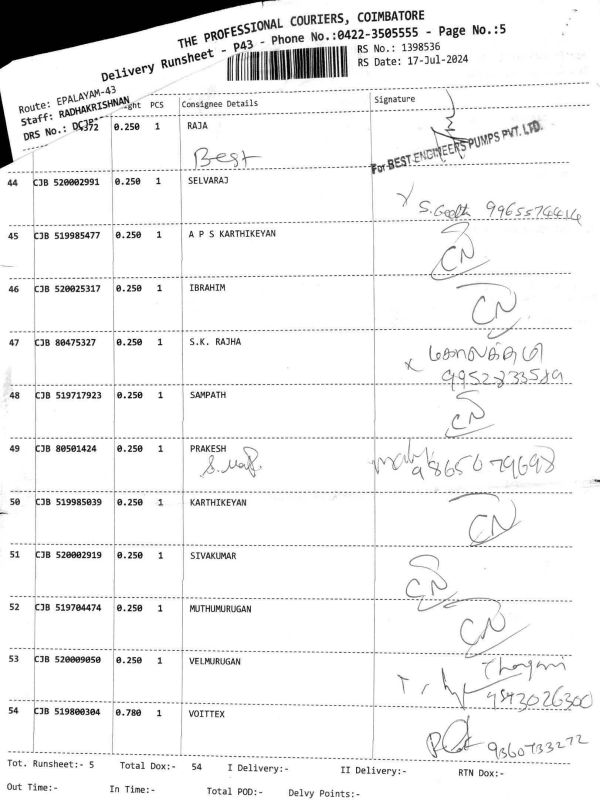 THE PROFESSIONAL COURIERS, COIMBATORE
Delivery Runsheet - P43 - Phone No.:0422-3505555 - Page No.:5
RS No.: 1398536
RS Date: 17-Jul-2024
Route: EPALAYAM-43
Staff: RADHAKRISHNAN
DRS No.:
PCS Consignee Details Signature
0.250 1 RAJA
Best
For BEST ENGINEERS PUMPS PVT. LTD.
44 CJB 520002991 0.250 1 SELVARAJ
45 CJB 519985477 0.250 1 A P S KARTHIKEYAN CN
46 CJB 520025317 0.250 1 IBRAHIM CN
47 CJB 80475327 0.250 1 S.K. RAJHA
9952833589
48 CJB 519717923 0.250 1 SAMPATH CN
49 CJB 80501424 0.250 1 PRAKESH
9865079698
50 CJB 519985039 0.250 1 KARTHIKEYAN CN
51 CJB 520002919 0.250 1 SIVAKUMAR CN
52 CJB 519704474 0.250 1 MUTHUMURUGAN CN
53 CJB 520009050 0.250 1 VELMURUGAN
9543026300
54 CJB 519800304 0.780 1 VOITTEX
9360733272
Tot. Runsheet:- 5 Total Dox:- 54 I Delivery:- II Delivery:- RTN Dox:-
Out Time:- In Time:- Total POD:- Delvy Points:-